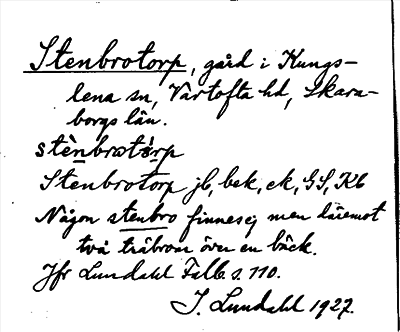 Stenbrotorp, gård i Kungs-
lena sn, Vartofta hd, Skara-
borgs län.
stènbrotȯ́rp
Stenbrotorp jb, bek, ek, GS, Kb
Någon stenbro finnes ej men däremot
två träbroar över en bäck.
Jfr Lundahl Falb. s. 110.
I. Lundahl 1927.